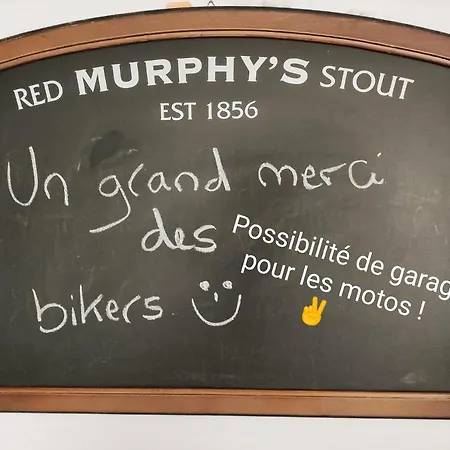 RED MURPHY'S STOUT
EST 1856
Un grand merci
des
bikers
Possibilité de garag
pour les motos !
✌️